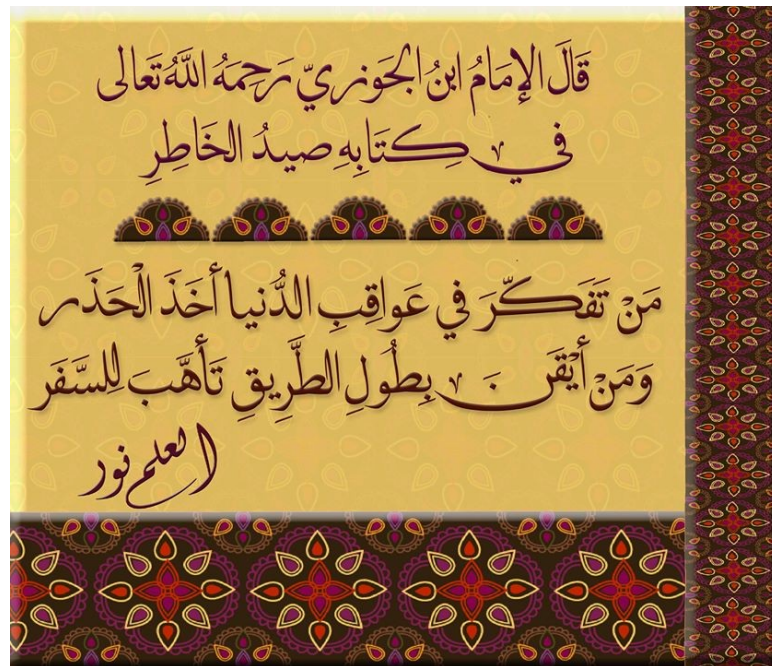 قَالَ الإِمَامُ ابنُ الجَوزيّ رَحِمَهُ اللهُ تَعَالى
في كِتَابِهِ صيدُ الخَاطِرِ
مَنْ تَفَكَّرَ في عَواقِبِ الدُّنيا أخَذَ الْحَذَر
وَمَنْ أَيْقَنَ بِطُولِ الطَّرِيقِ تَأهَّبَ لِلسَّفَر
العلم نور